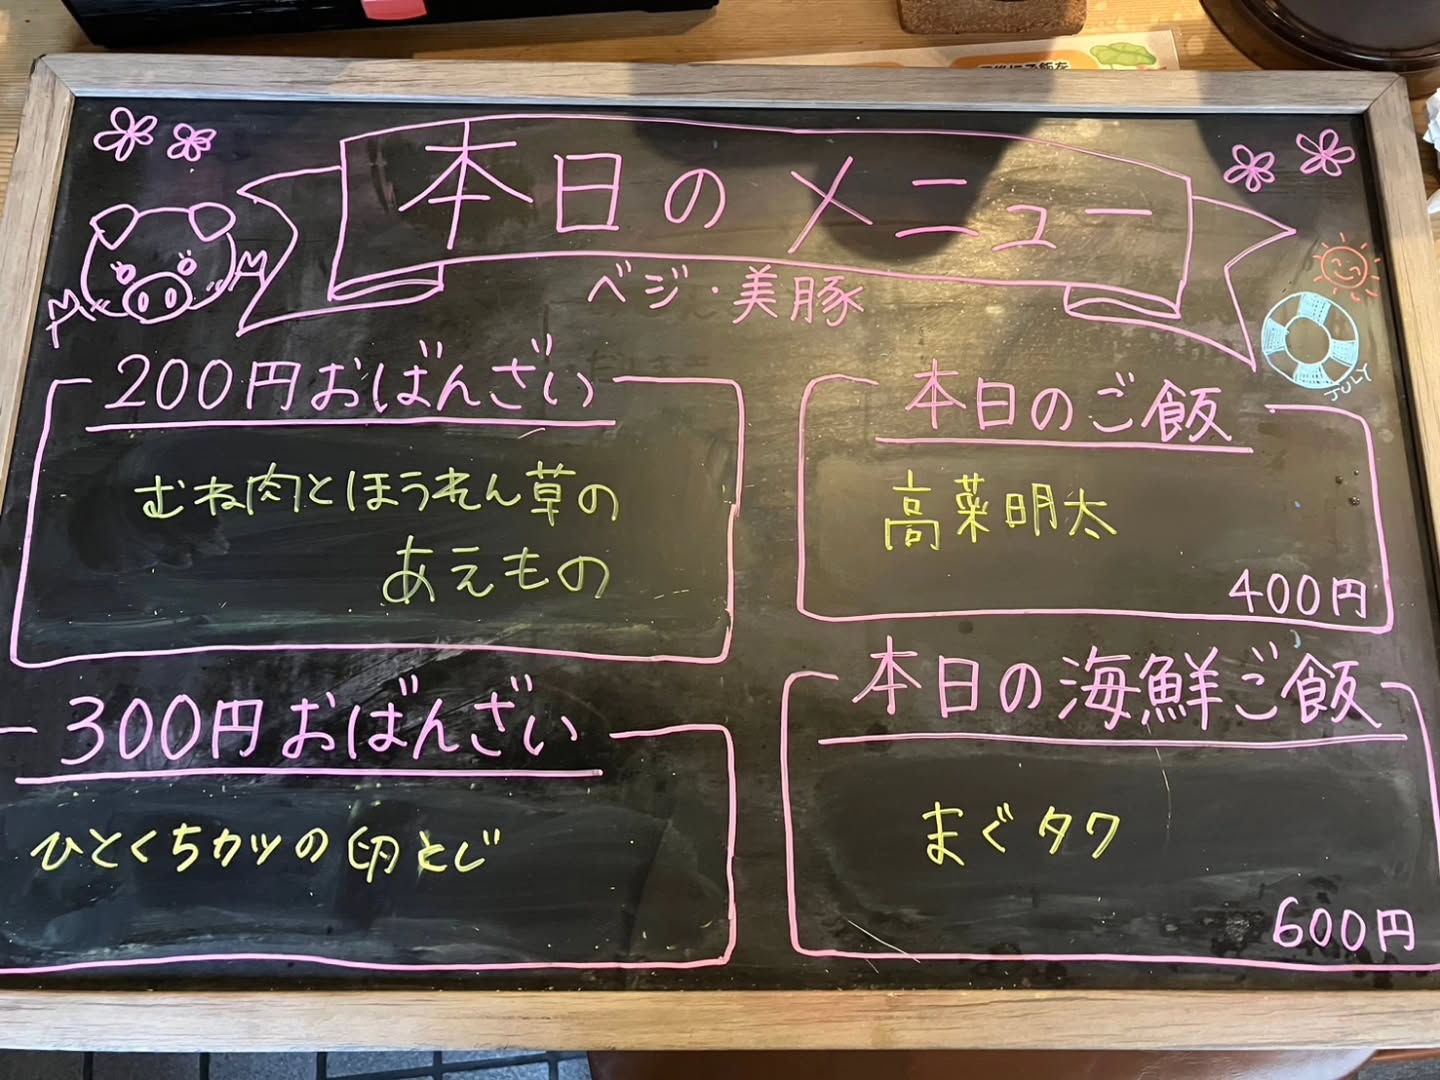 本日のメニュー
ベジ・美豚
200円おばんざい
むね肉とほうれん草の
あえもの
300円おばんざい
ひとくちカツの卵とじ
本日のご飯
高菜明太
400円
本日の海鮮ご飯
まぐタク
600円
JULY